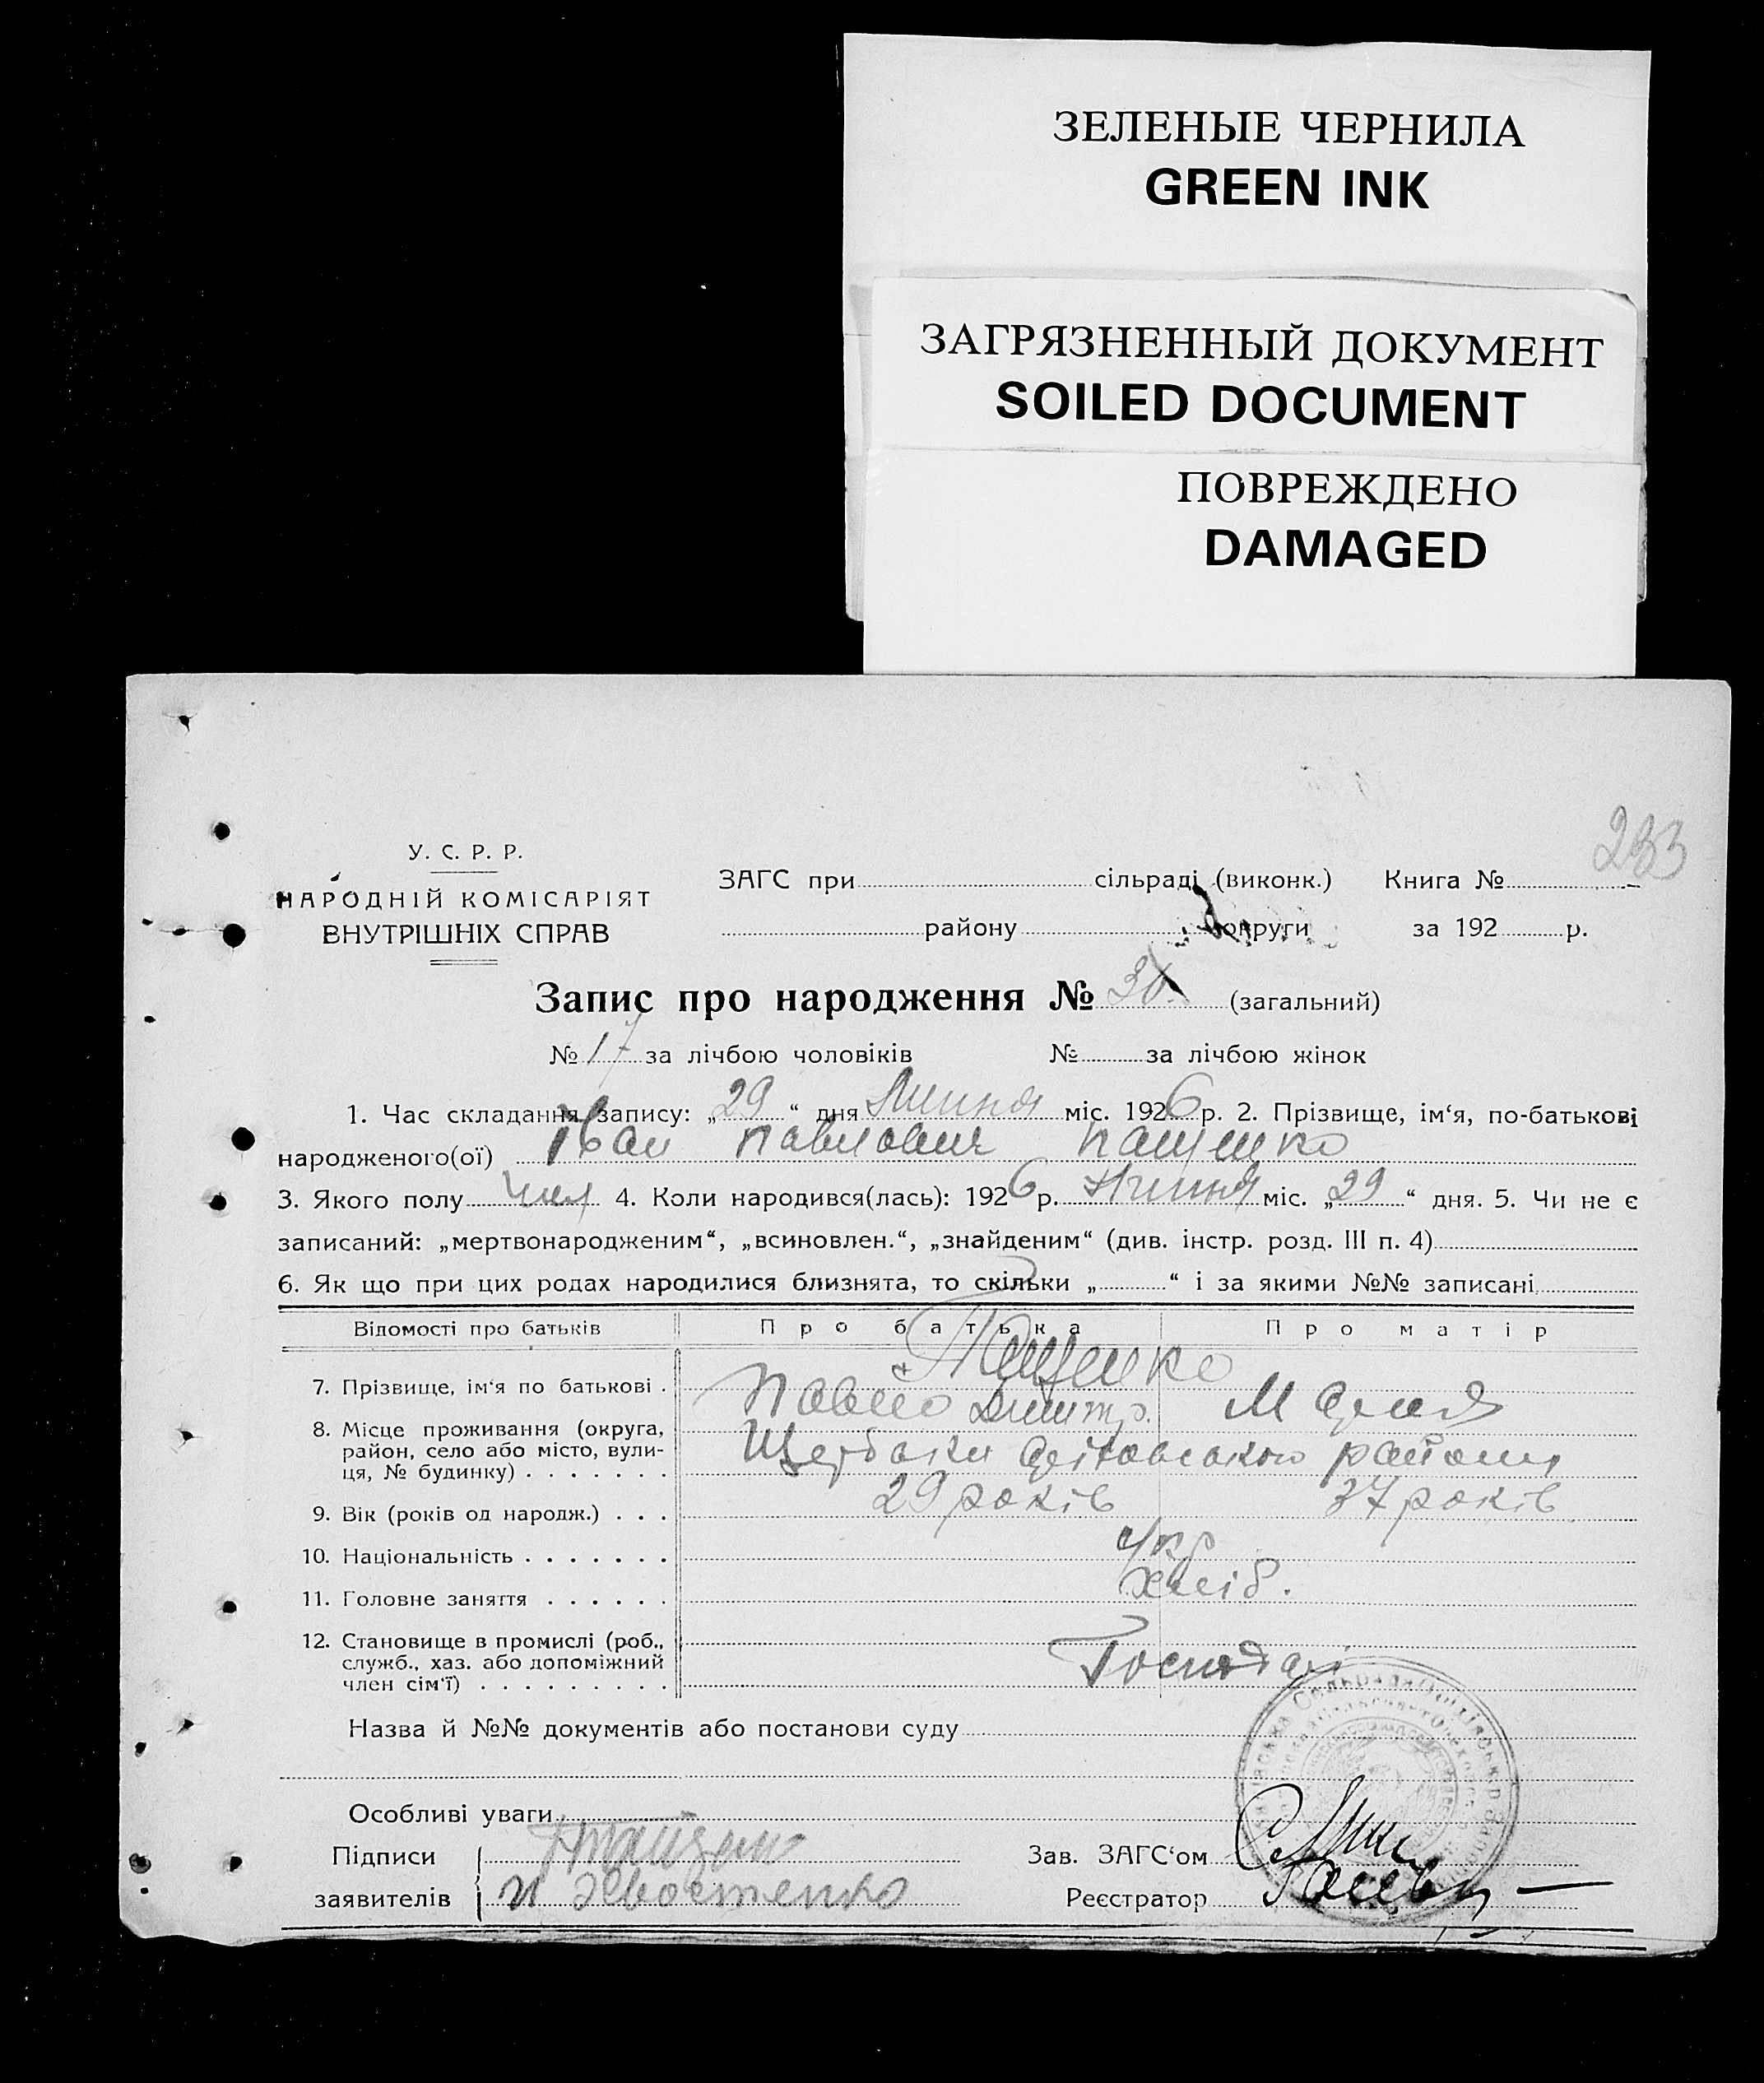 ЗЕЛЕНЫЕ ЧЕРНИЛА
GREEN INK
ЗАГРЯЗНЕННЫЙ ДОКУМЕНТ
SOILED DOCUMENT
ПОВРЕЖДЕНО
DAMAGED
233
У. С. Р. Р.
НАРОДНІЙ КОМІСАРІЯТ
ВНУТРІШНІХ СПРАВ
ЗАГС при сільраді (виконк.) Книга №
району округи за 192 р.
Запис про народження № (загальний)
№ 17 за лічбою чоловіків № за лічбою жінок
1. Час складання запису: „29“ дня Липня міс. 1926 р. 2. Прізвище, ім‘я, по-батькові
народженого(ої) Іван Павлович Пащенко
3. Якого полу чол 4. Коли народився(лась): 1926 р. Липня міс. „29“ дня. 5. Чи не є
записаний: „мертвонародженим“, „всиновлен.“, „знайденим“ (див. інстр. розд. III п. 4)
6. Як що при цих родах народилися близнята, то скільки „ “ і за якими №№ записані
Відомості про батьків Про батька Про матір
Пащенко
7. Прізвище, ім‘я по батькові . Павло Дмитр. Мария
8. Місце проживання (округа,
район, село або місто, вули-
ця, № будинку) . . . . . . . Щербаки району
9. Вік (років од народж.) . . . 29 років 37 років
10. Національність . . . . . . . Укр
11. Головне заняття . . . . . . хліб.
12. Становище в промислі (роб.,
служб., хаз. або допоміжний
член сім‘ї) . . . . . . . . . Господар
Назва й №№ документів або постанови суду
Особливі уваги
Підписи Зав. ЗАГС‘ом
заявителів и Хвостенко Реєстратор